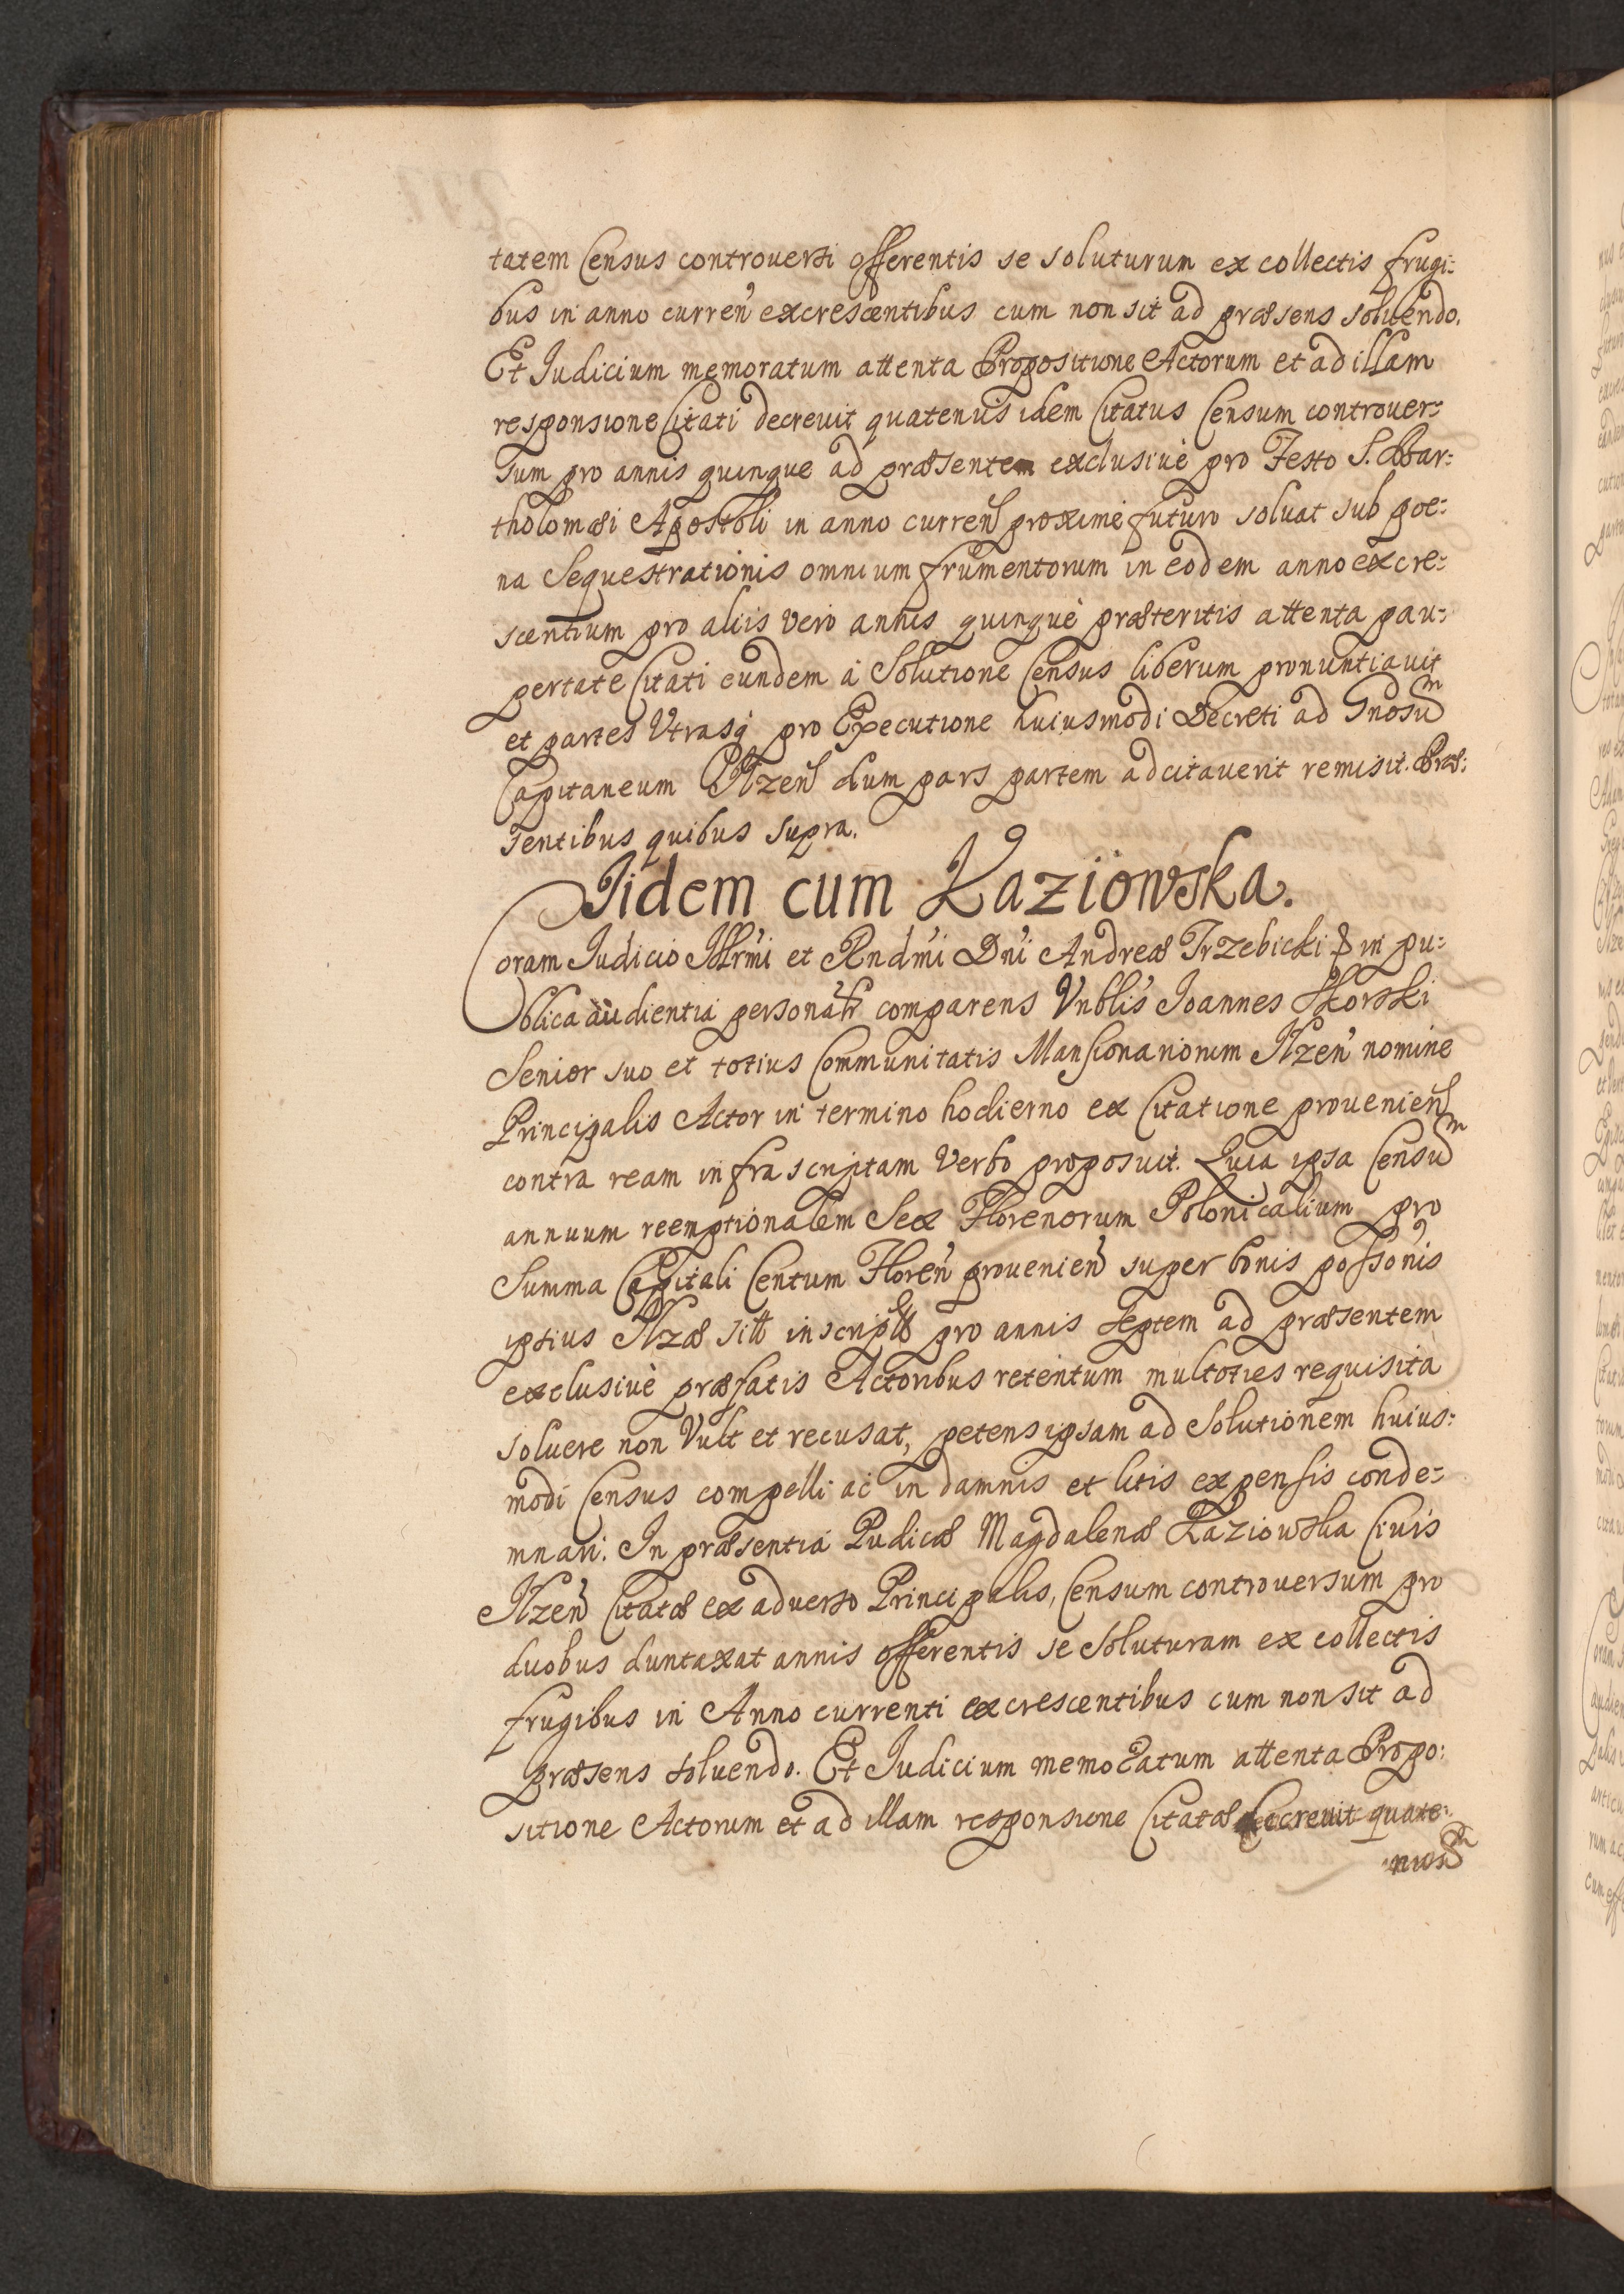 tatem Census controuersi offerentis se soluturum ex collectis frugi:
bus in anno curren̄ excrescentibus cum non sit ad præsens soluendo.
Et Judicium memoratum attenta Propositione Actorum et ad illam
responsione Citati decreuit quatenus idem Citatus Censum controuer:
sum pro annis quinque ad præsentem exclusiuè pro Festo S. Bar:
tholomæi Apostoli in anno curren̄ proximè futuro soluat sub poe:
na Sequestrationis omnium frumentorum in eodem anno excre:
scentium pro aliis vero annis quinquè præteritis attenta pau:
pertate Citati eundem à Solutione Census liberum pronuntiauit
et partes Vtrasq́ pro Executione huiusmodi Decreti ad Gnosum
Capitaneum Ilzen̄ dum pars partem adcitauerit remisit. Præ:
sentibus quibus supra.
Iidem cum Łaziowska.
Coram Judicio Illr̄mi et Rndm̄i Dn̄i Andreæ Trzebicki & in pu:
blica audientia personalr̄ comparens Vnblis Joannes Skorski
Senior suo et totius Communitatis Mansionariorum Ilzen̄ nomine
Principalis Actor in termino hodierno ex Citatione prouenien̄
contra ream infra scriptam Verbo proposuit. Quia ipsa Censum
annuum reemptionalem Sex Florenorum Polonicalium pro
Summa Capitali Centum Floren̄ prouenien̄ super bonis possonis
ipsius Ilzæ sitt inscriptt pro annis septem ad præsentem
exclusiuè præfatis Actoribus retentum multoties requisita
soluere non Vult et recusat, petens ipsam ad Solutionem huius:
modi Census compelli ac in damnis et litis expensis conde:
mnari. In præsentia Pudicæ Magdalenæ Łaziowska Ciuis
Ilzen̄ Citatæ ex aduerso Principalis, Censum controuersum pro
duobus duntaxat annis offerentis se soluturam ex collectis
frugibus in Anno currenti excrescentibus cum non sit ad
præsens soluendo. Et Judicium memoratum attenta Propo:
sitione Actorum et ad illam responsione Citatæ decreuit quate:
nus